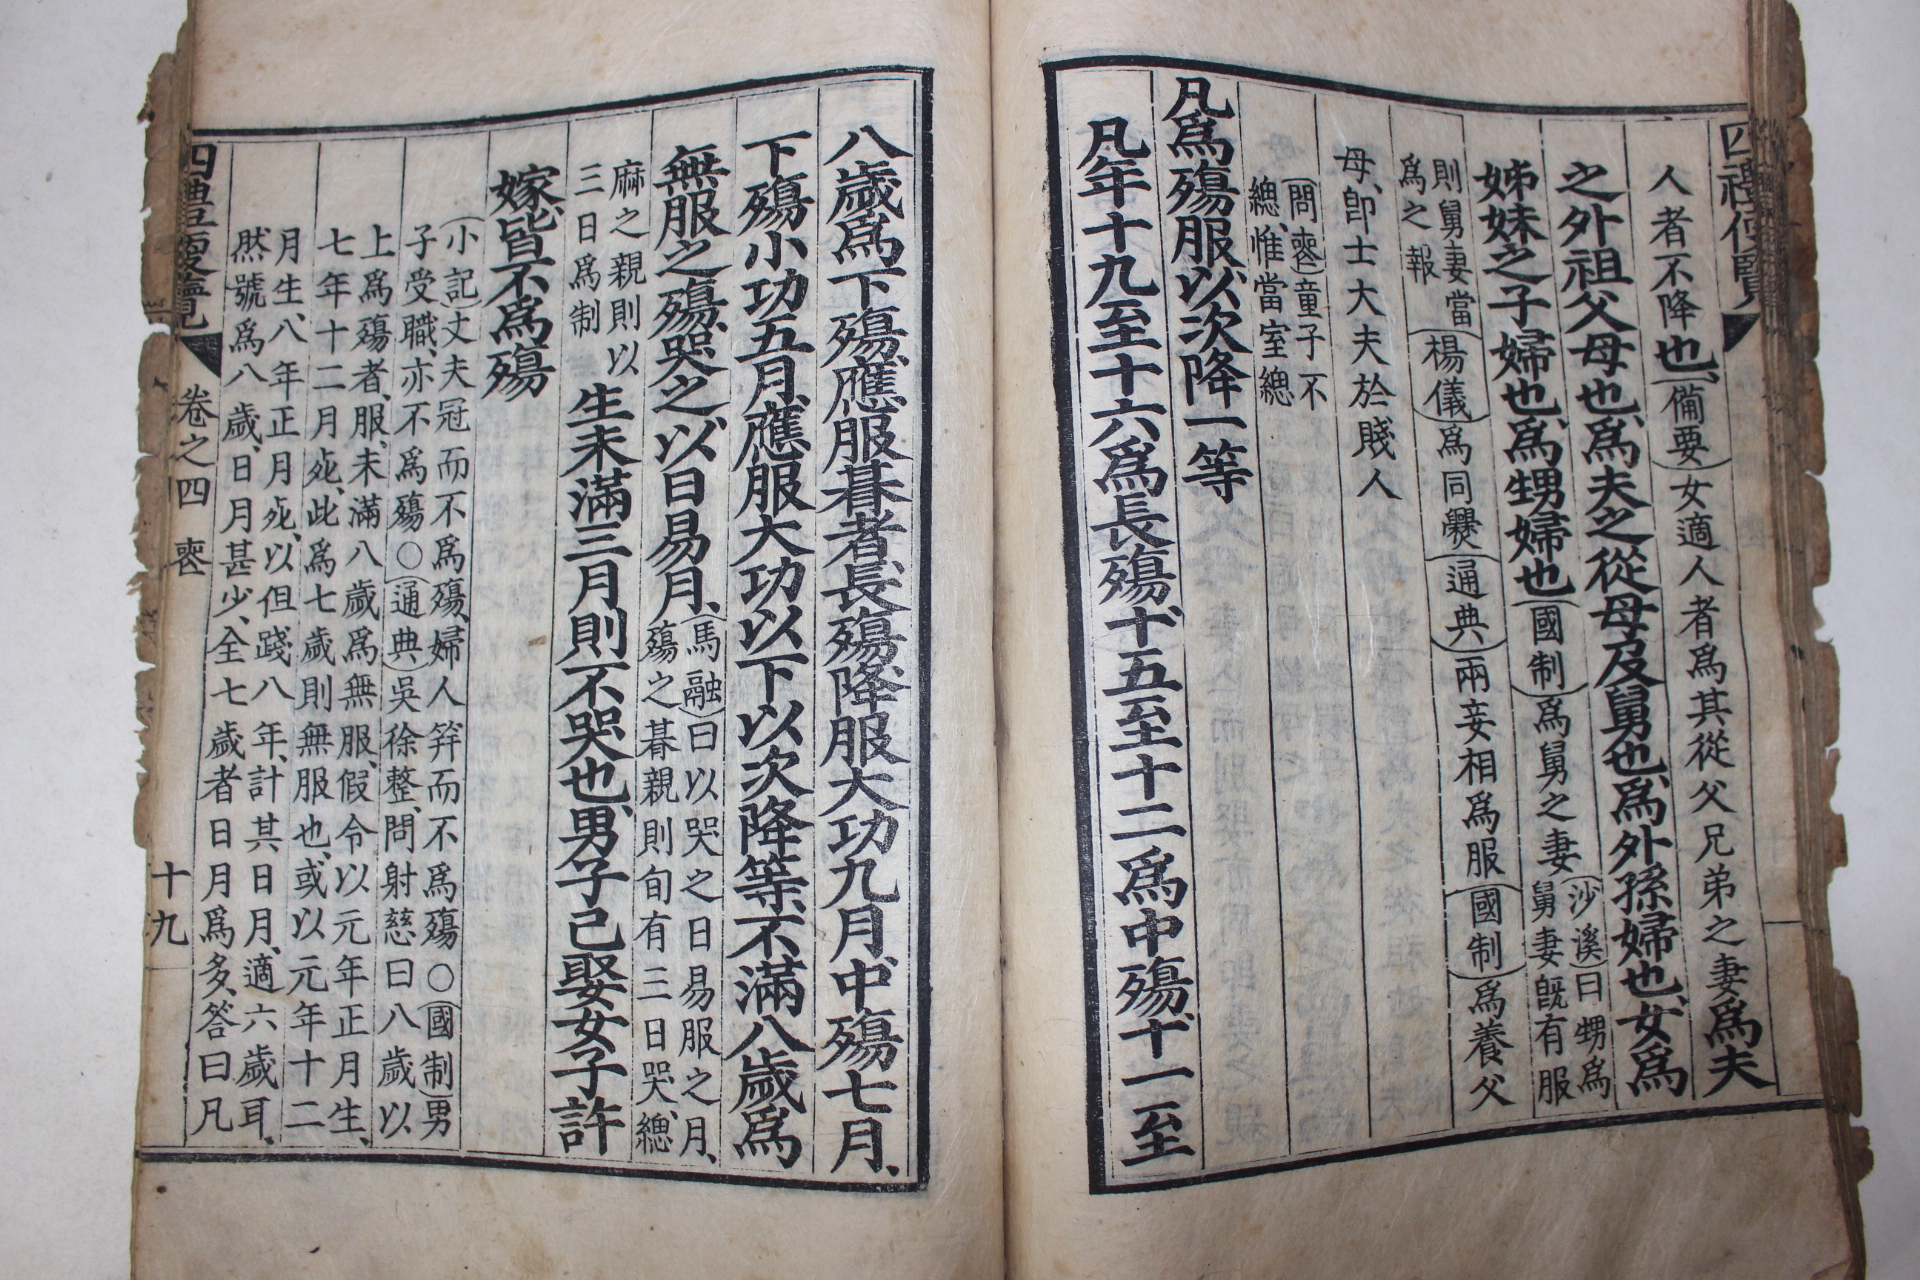 四禮便覽
人者不降也、(備要)女適人者爲其從父兄弟之妻爲夫
之外祖父母也、爲夫之從母及舅也、爲外孫婦也、女爲
姊妹之子婦也、爲甥婦也(國制)爲舅之妻(沙溪)曰甥爲舅妻旣有服
則舅妻當爲之報(楊儀)爲同爨(通典)兩妾相爲服(國制)爲養父
母、卽士大夫於賤人
(問喪)童子不緦、惟當室緦
凡爲殤服以次降一等
凡年十九至十六爲長殤、十五至十二爲中殤、十一至
八歲爲下殤、應服朞者、長殤降服大功九月、中殤七月、
下殤小功五月、應服大功以下以次降等、不滿八歲爲
無服之殤、哭之、以日易月、(馬融)曰以哭之日易服之月、殤之朞親則旬有三日哭、緦
麻之親則以三日爲制生未滿三月則不哭也、男子已娶女子許
嫁、皆不爲殤
(小記)丈夫冠而不爲殤、婦人笄而不爲殤○(國制)男
子受職、亦不爲殤○(通典)吳徐整、問射慈曰八歲以
上爲殤者、服、未滿八歲爲無服、假令以元年正月生、
七年十二月死、此爲七歲則無服也、或以元年十二
月生、八年正月死、以但踐八年、計其日月、適六歲耳、
然號爲八歲、日月甚少、全七歲者日月爲多、答曰凡
四禮便覽
卷之四 喪
十九